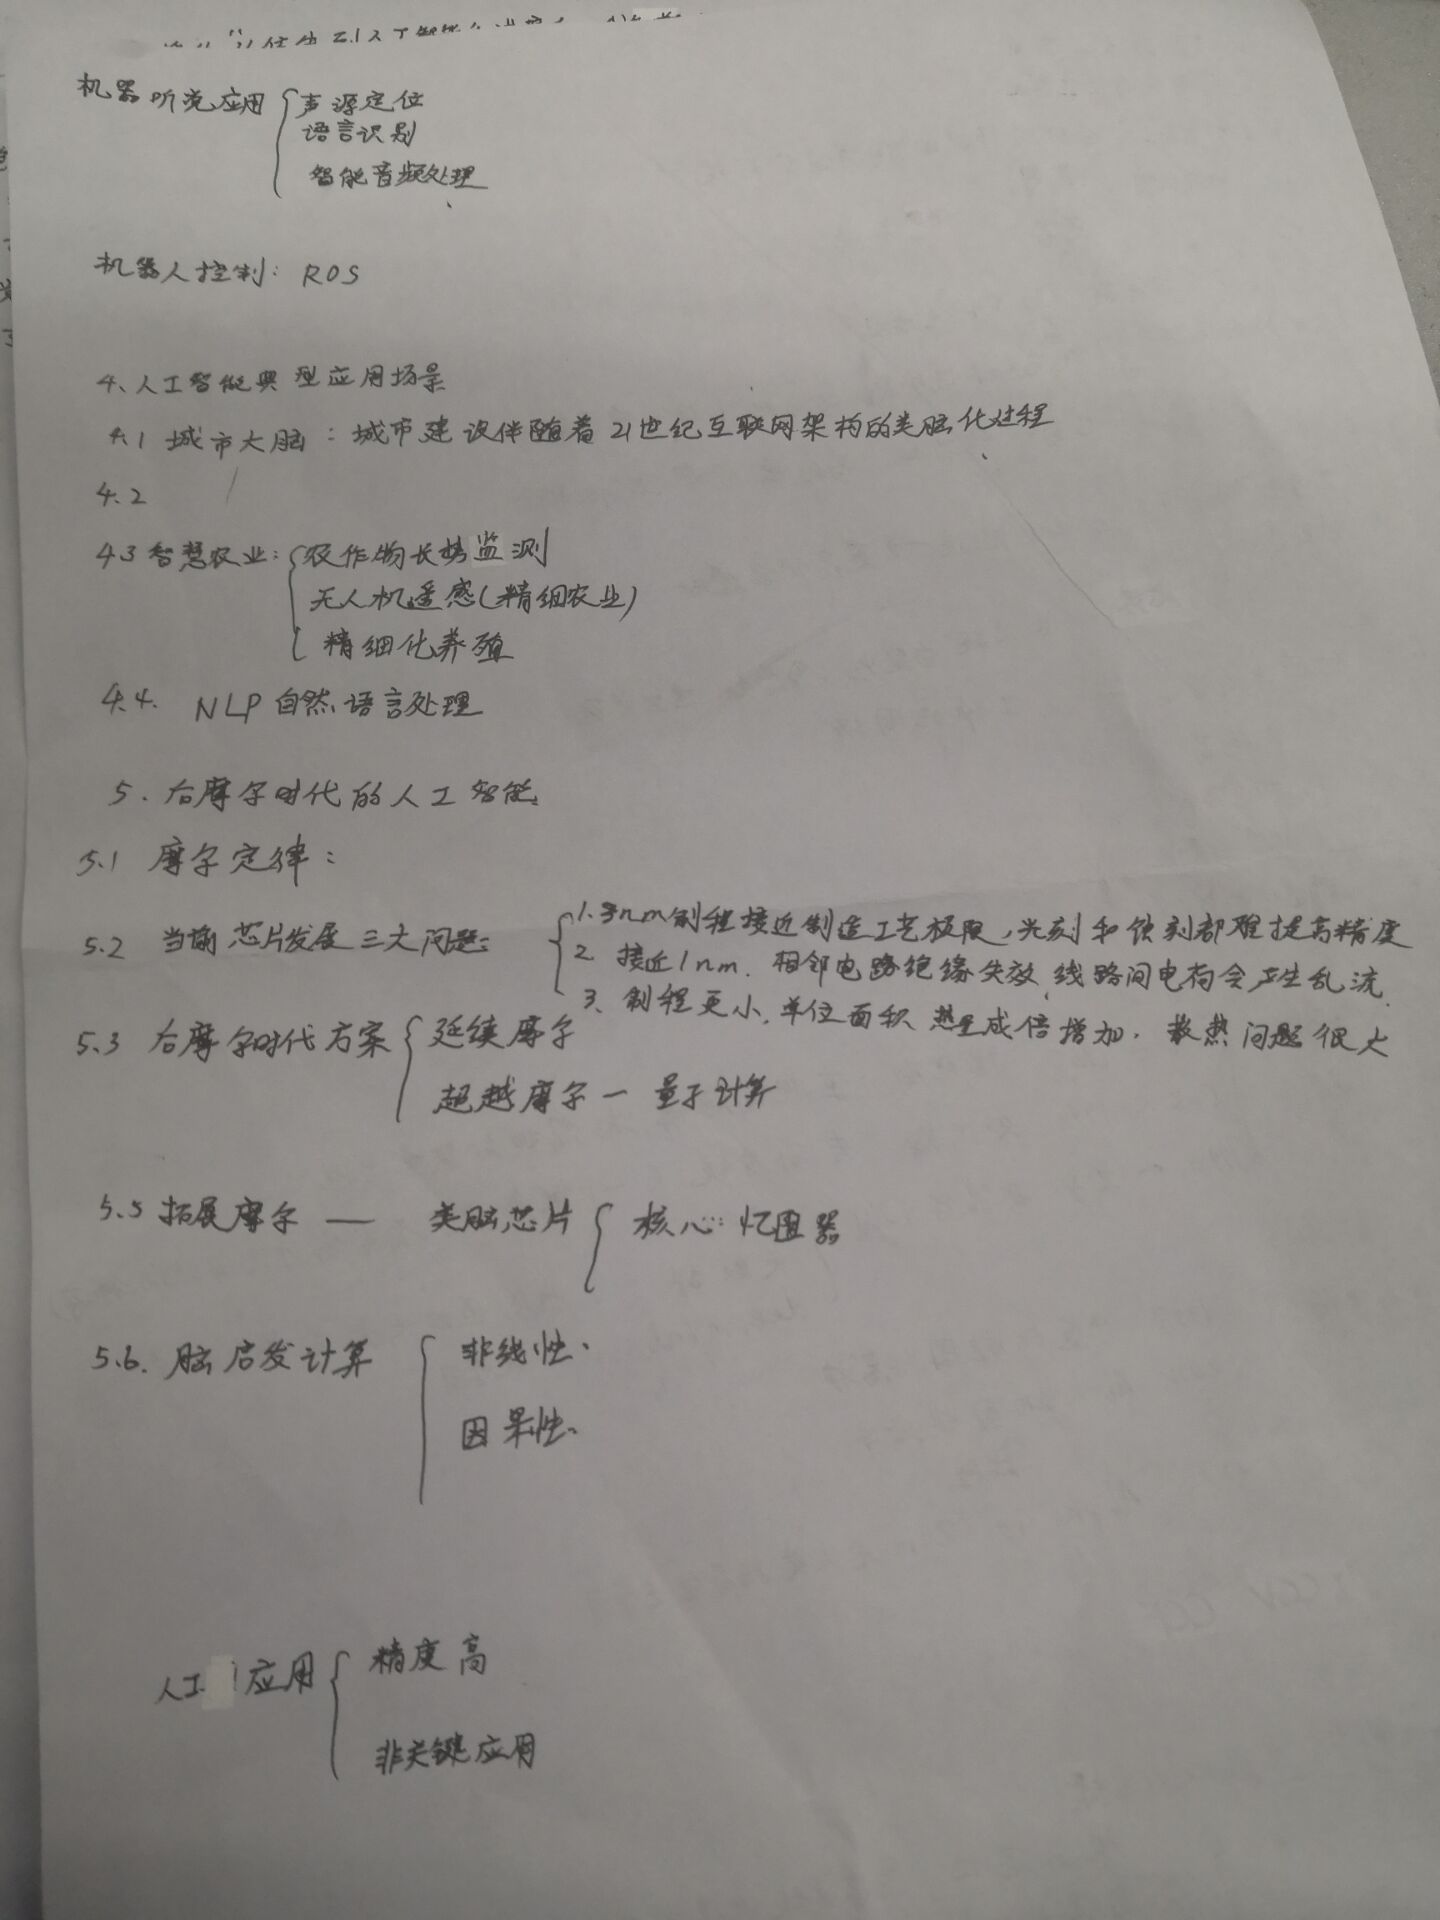 机器听说应用 声源定位
语言识别
智能音频处理
机器人控制: ROS
4、人工智能典型应用场景
4.1 城市大脑: 城市建设伴随着21世纪互联网架构的类脑化过程
4.2
4.3 智慧农业: 农作物长势监测
无人机遥感(精细农业)
精细化养殖
4.4. NLP 自然语言处理
5. 后摩尔时代的人工智能
5.1 摩尔定律:
5.2 当前芯片发展三大问题: 1. 3nm制程接近制造工艺极限,光刻和蚀刻都难提高精度
2. 接近1nm. 相邻电路绝缘失效,线路间电荷会产生乱流.
3. 制程更小,单位面积热量成倍增加. 散热问题很大
5.3 后摩尔时代方案 延续摩尔
超越摩尔 — 量子计算
5.5 拓展摩尔 — 类脑芯片 核心: 忆阻器
5.6. 脑启发计算 非线性.
因果性.
人工 应用 精度高
非关键应用